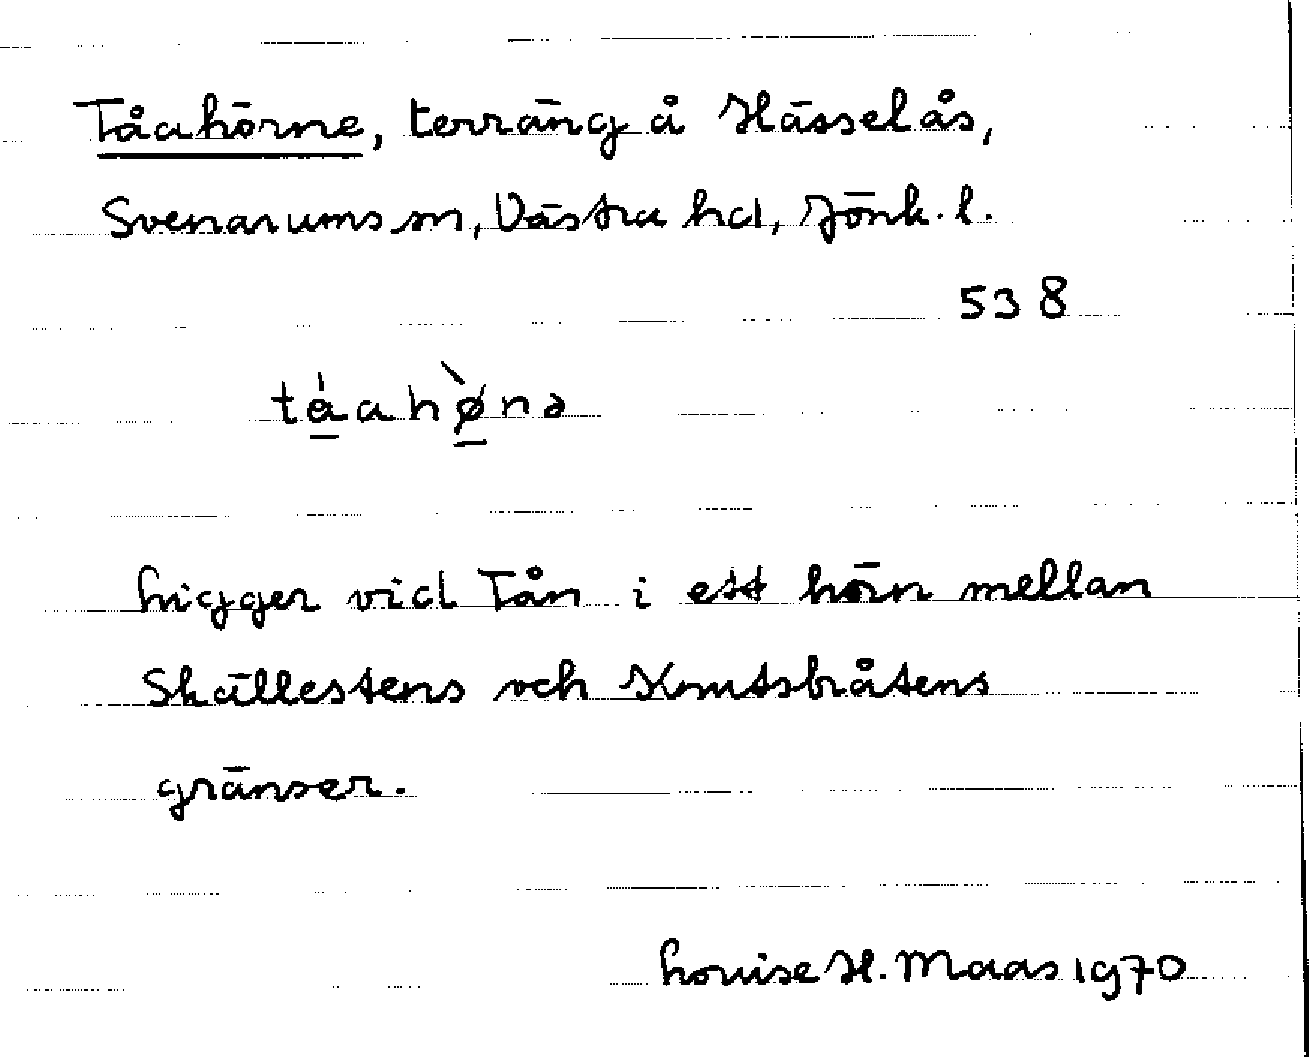 Tåahörne, terräng å Hässelås,
Svenarums sn, Västra hd, Jönk. l.
538
tåahø̀nə
Ligger vid Tån i ett hörn mellan
Skällestens och Knutsbråtens
gränser.
Louise H. Maas 1970